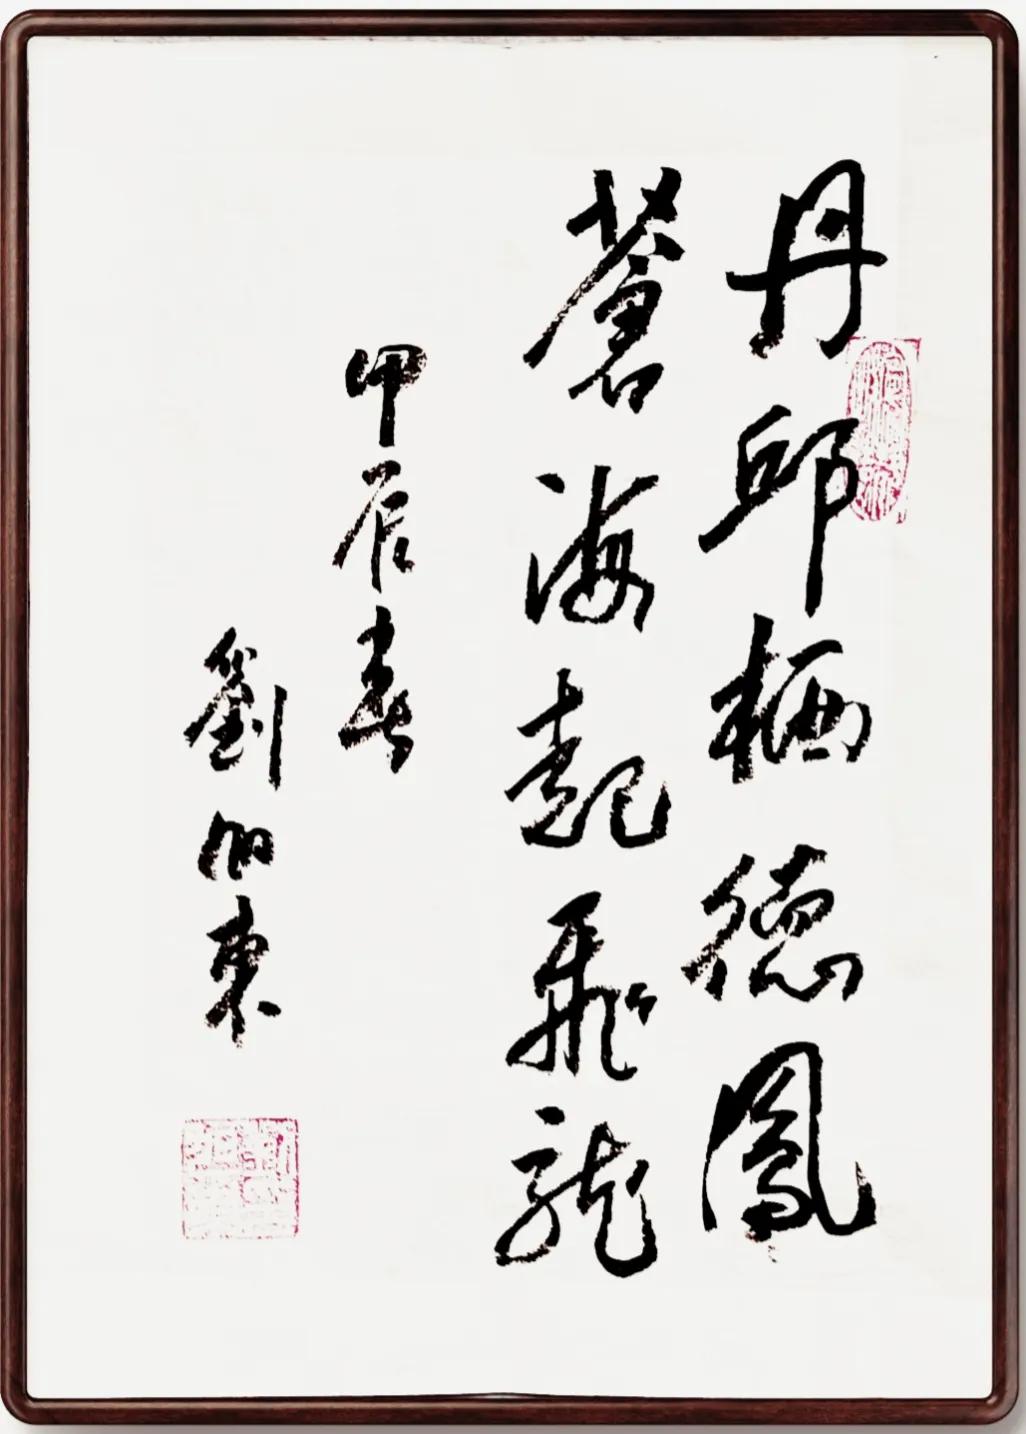 丹邱栖德鳳
蒼海起飛龍
甲辰春
劉旭東